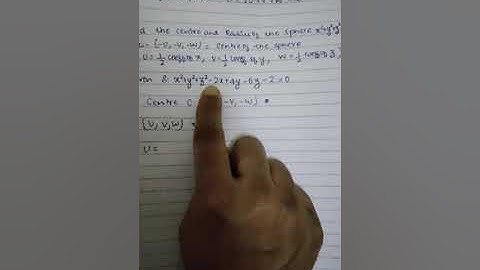 d the centre and Radius of the sphere x²+y²+z²
= (-U, -V, -W) = Centre of the sphere
U = 1/2 coeff of x, V = 1/2 coeff of y, W = 1/2 coeff of z,
en S: x²+y²+z²-2x+4y-6y-2=0
Centre C -V, -W)
(U, V, W)
U =